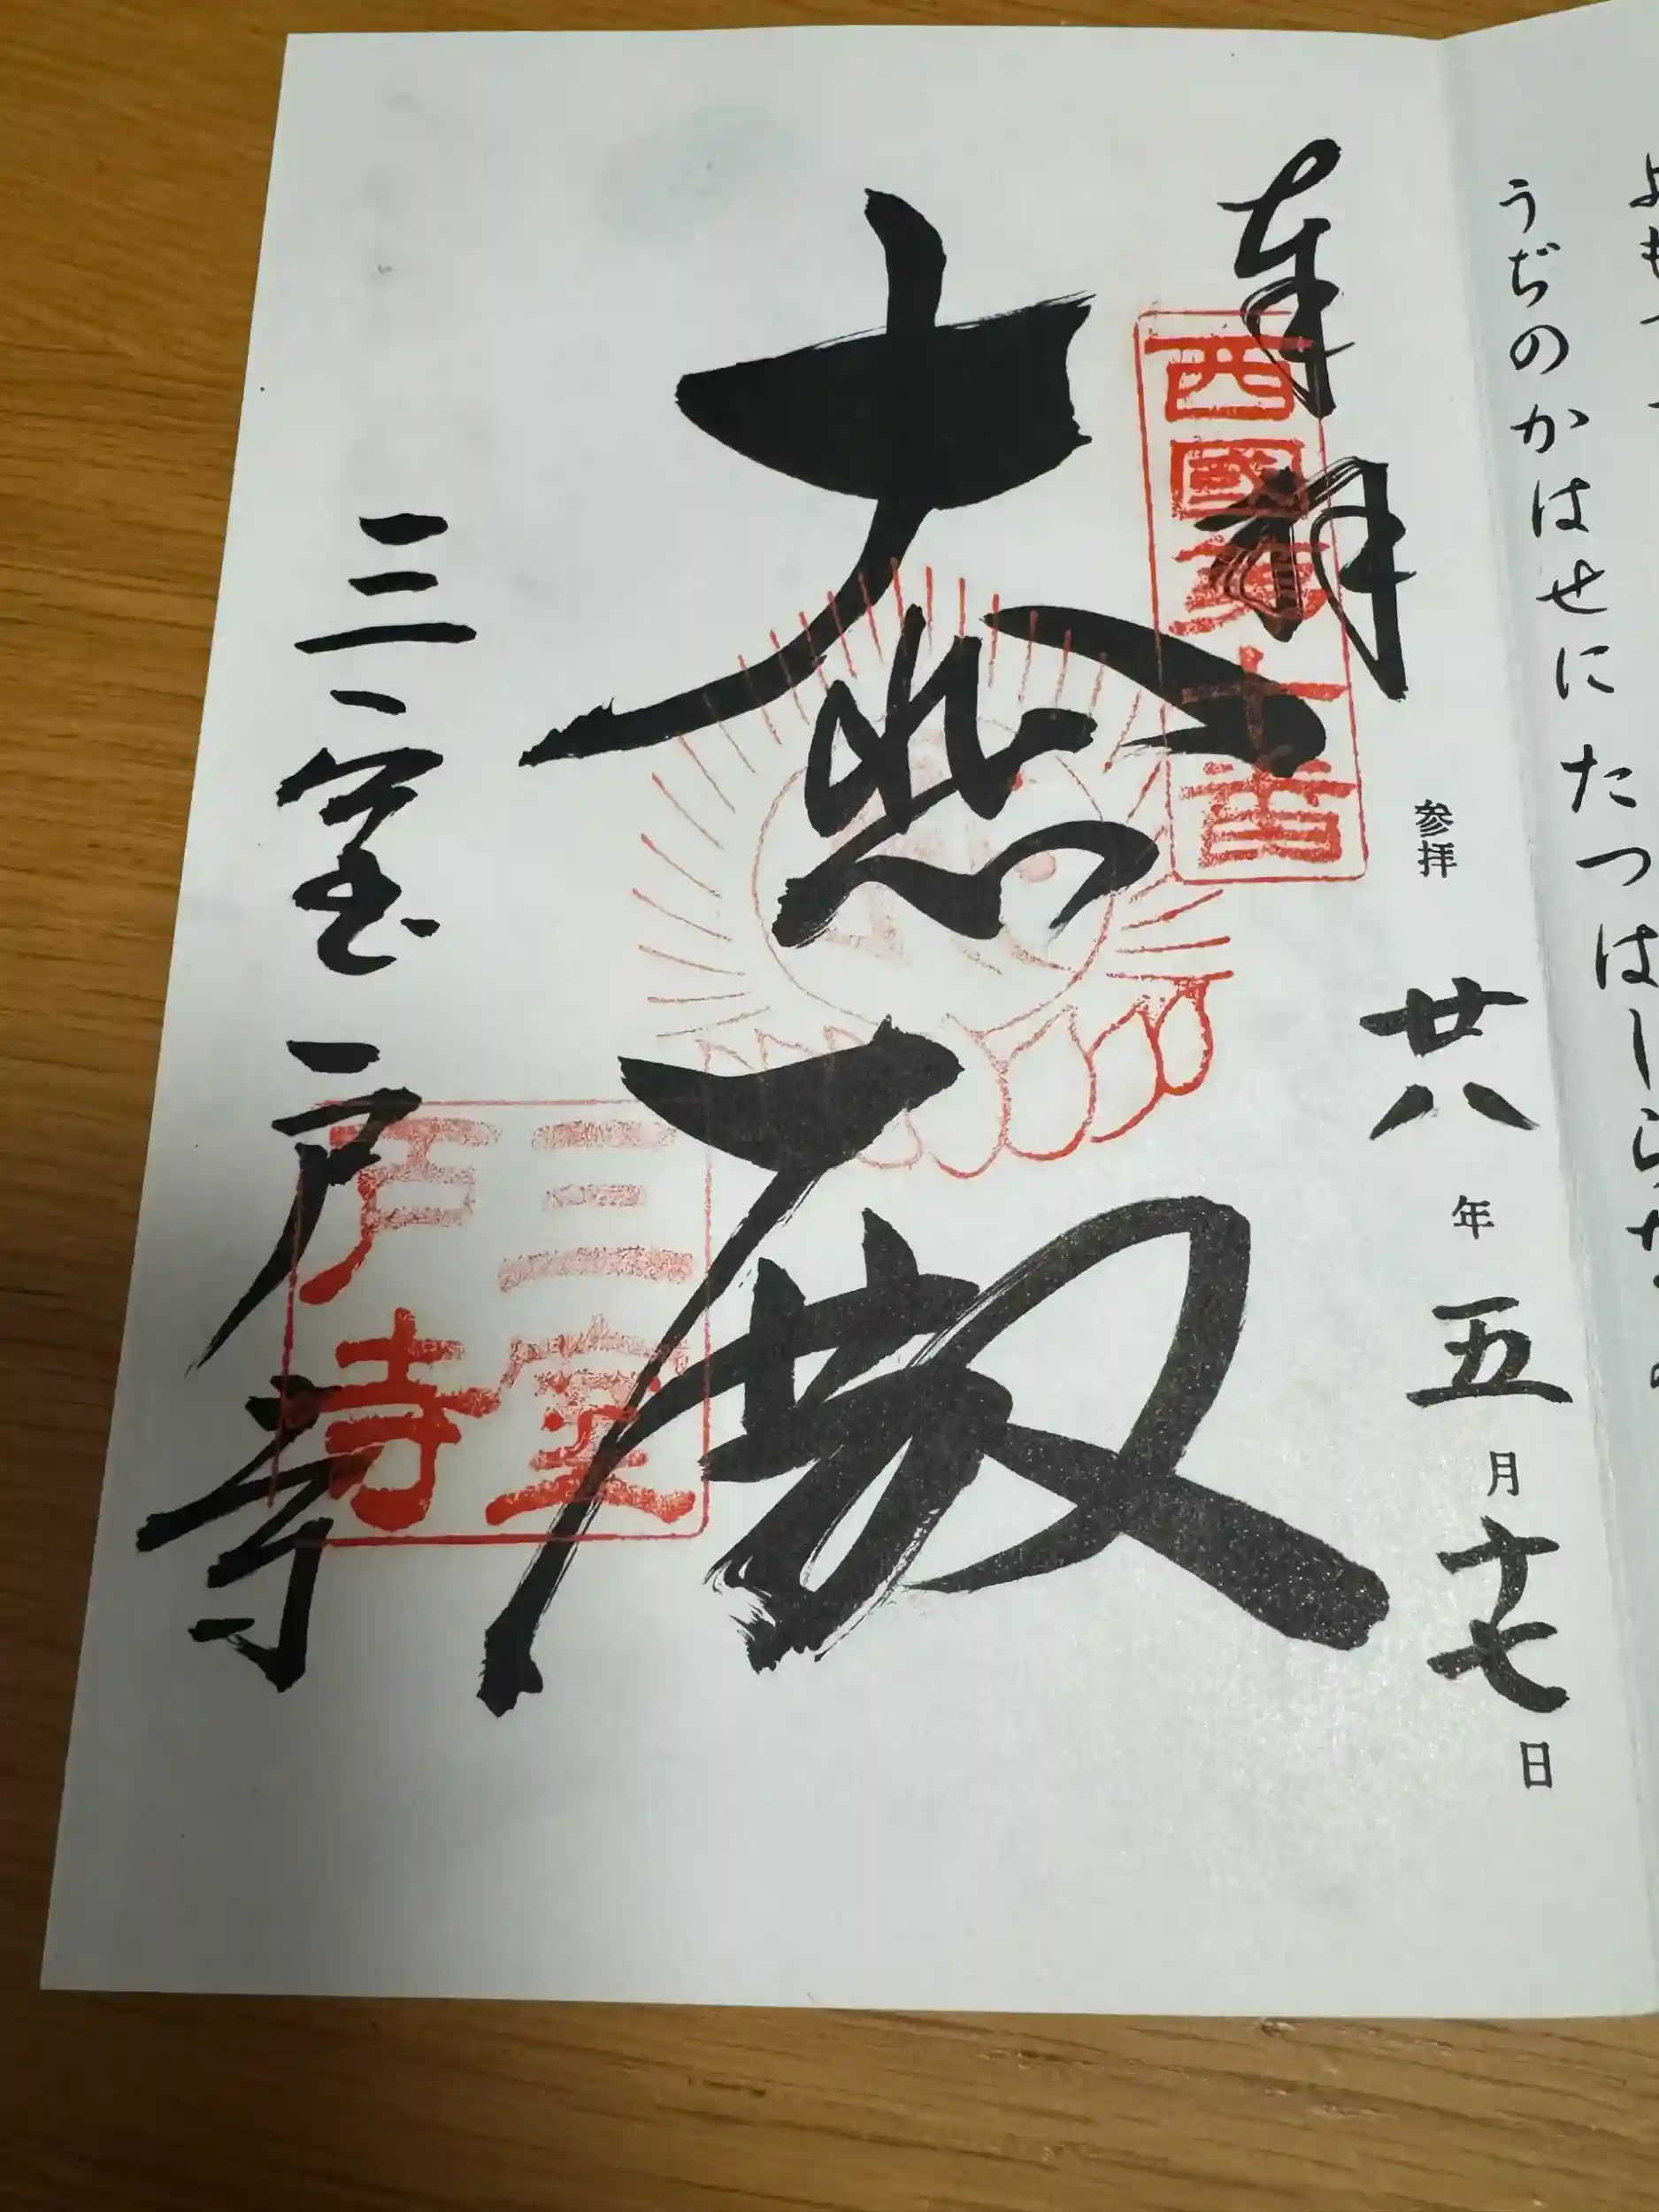 うぢのかはせに たつはしら
参拝 廿八年五月十七日
奉拝
西國第十番
大悲殿
三室戸寺
三室戸寺